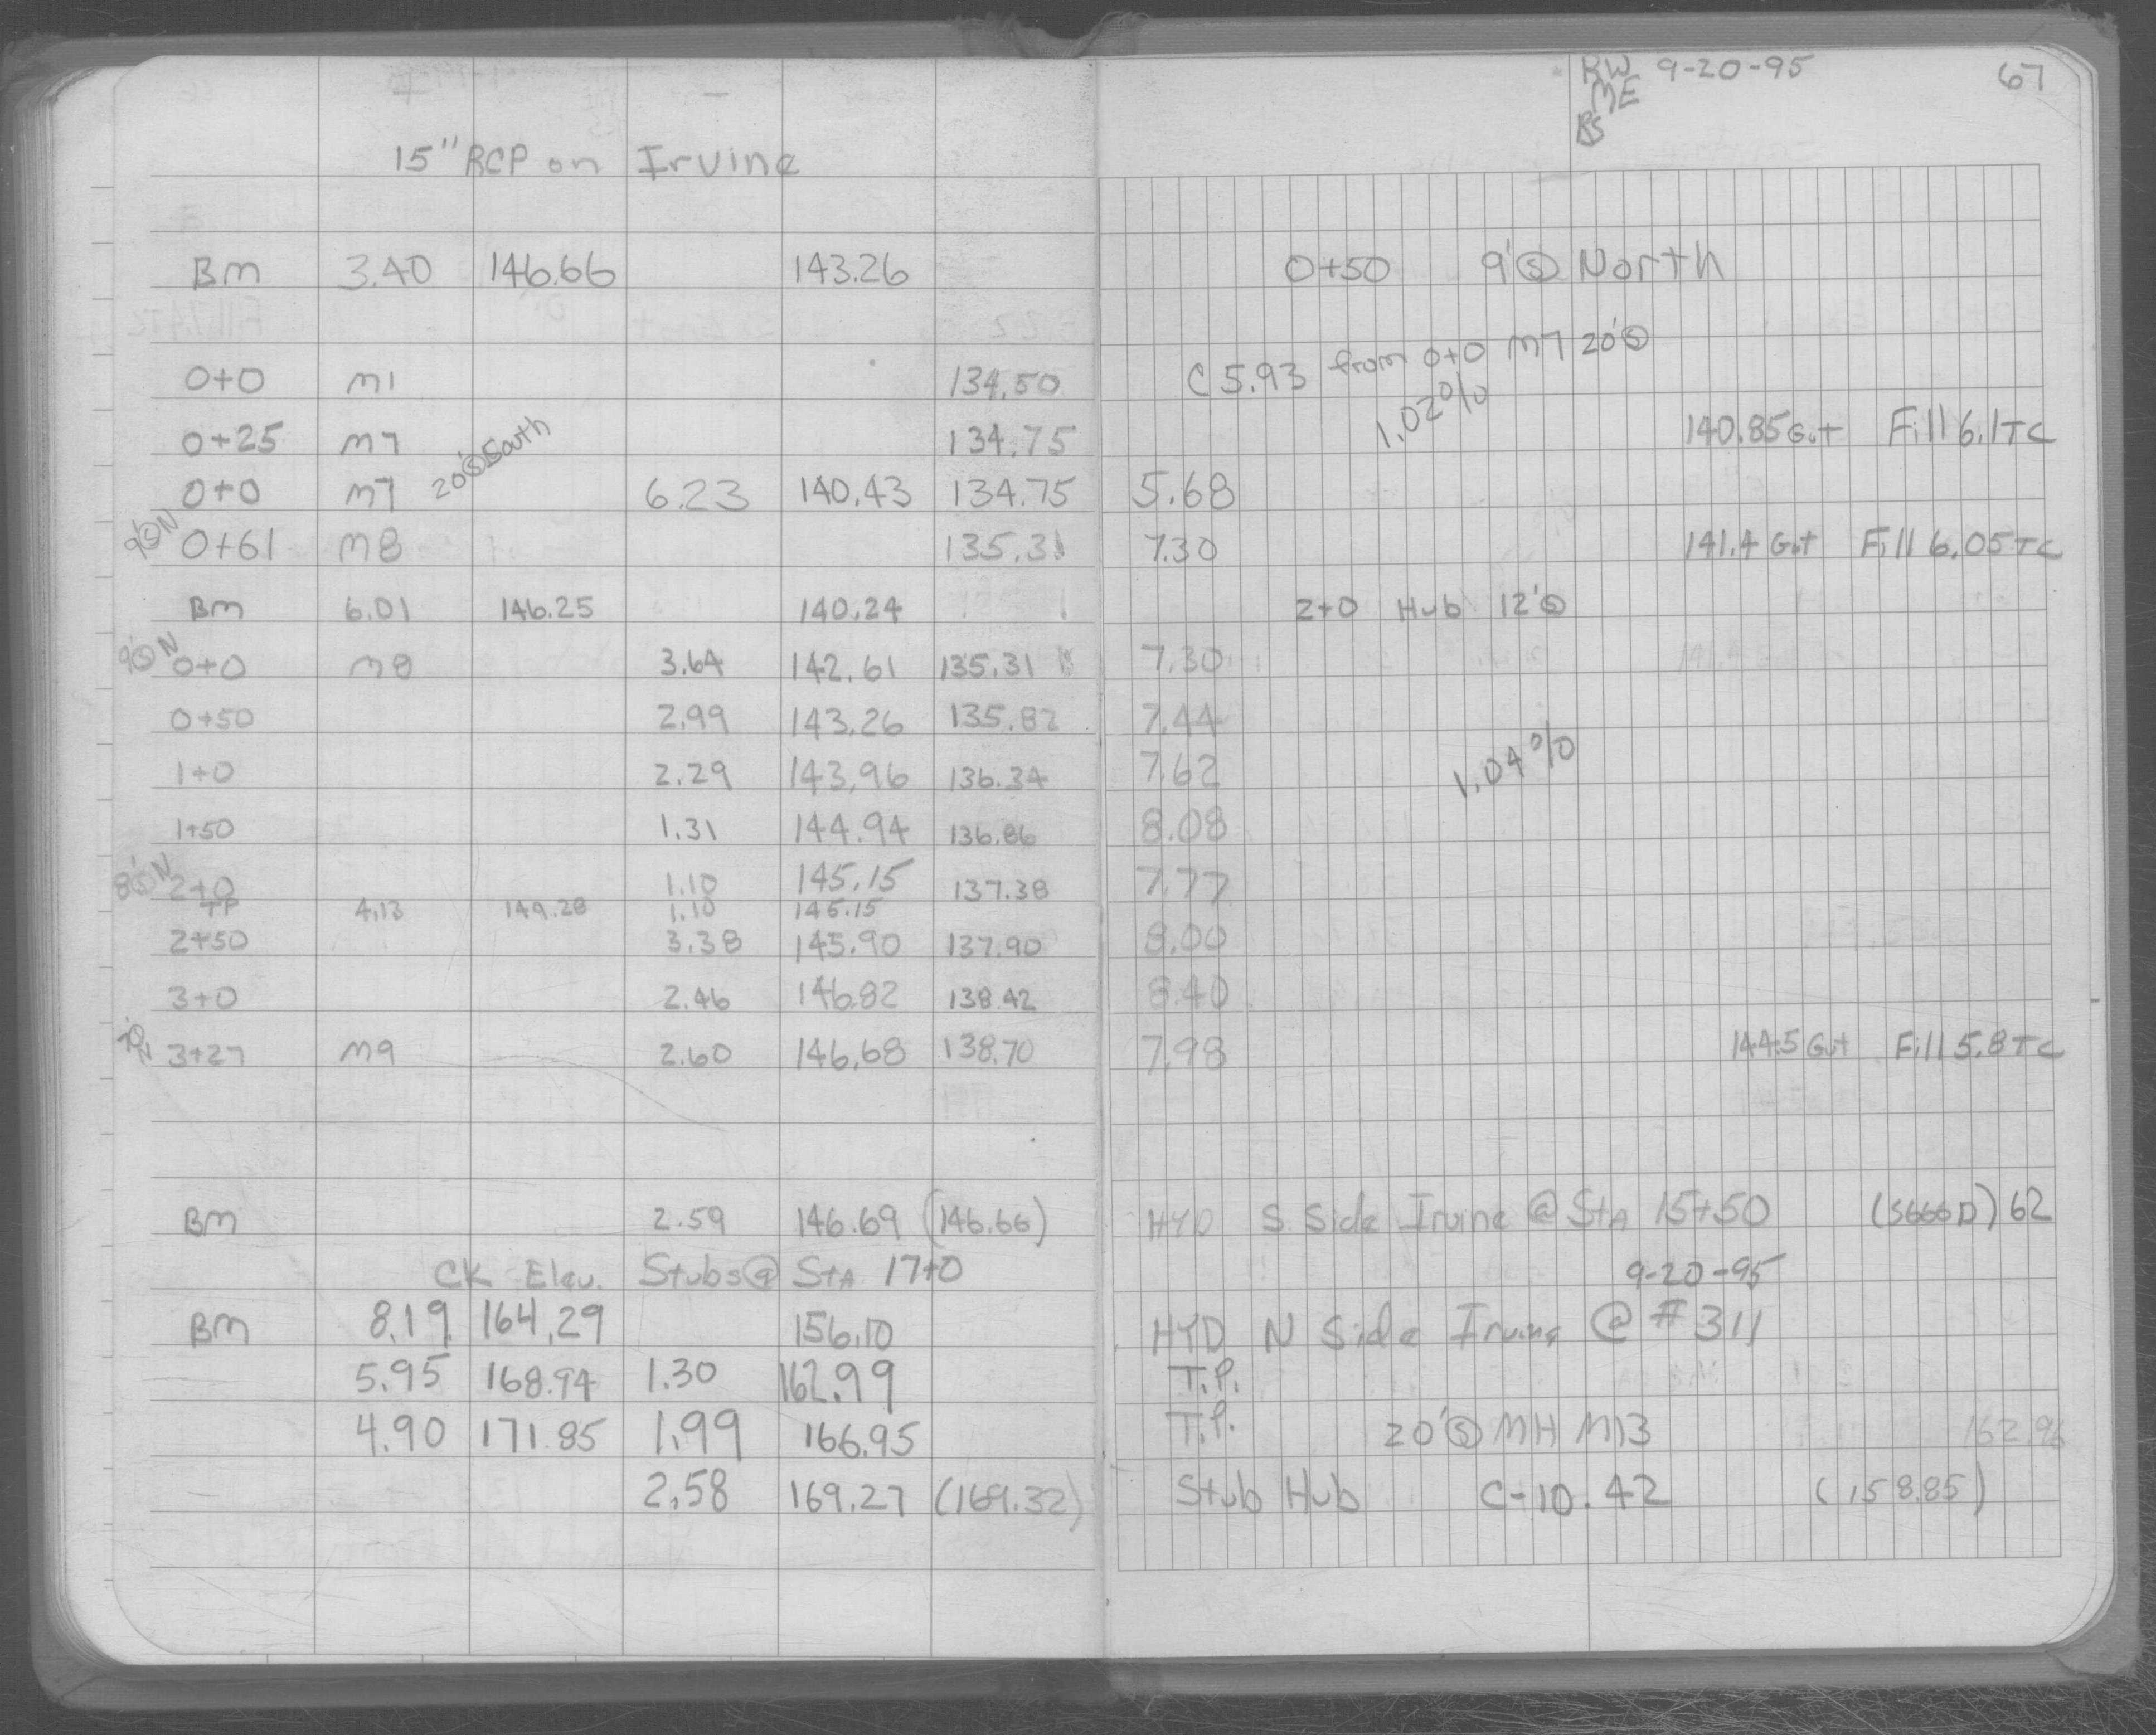 RW 9-20-95 67
ME
BS
15" RCP on Irvine
Bm 3.40 146.66 143.26 0+50 9' Ⓢ North
0+0 m1 134.50 C 5.93 from 0+0 m7 20'Ⓢ
1.02%
0+25 m7 134.75 140.85 Gut Fill 6.1 TC
20'Ⓢ South
0+0 m7 6.23 140.43 134.75 5.68
9'ⓈN 0+61 m8 135.31 7.30 141.4 Gut Fill 6.05 TC
Bm 6.01 146.25 140.24 2+0 Hub 12'Ⓢ
9'ⓈN 0+0 m8 3.64 142.61 135.31 7.30
0+50 2.99 143.26 135.82 7.44
1+0 2.29 143.96 136.34 7.62
1.04%
1+50 1.31 144.94 136.86 8.08
8'ⓈN 2+0 1.10 145.15 137.38 7.77
TP 4.13 149.28 1.10 145.15
2+50 3.38 145.90 137.90 8.00
3+0 2.46 146.82 138.42 8.40
N 3+27 m9 2.60 146.68 138.70 7.98 144.5 Gut Fill 5.8 TC
Bm 2.59 146.69 (146.66) HYD S Side Irvine @ StA 15+50 (S666D) 62
CK Elev. Stubs @ StA 17+0 9-20-95
Bm 8.19 164.29 156.10 HYD N Side Irving @ #311
5.95 168.94 1.30 162.99 T.P.
4.90 171.85 1.99 166.95 T.P. 20'Ⓢ MH M13 162.96
2.58 169.27 (169.32) Stub Hub C-10.42 (158.85)